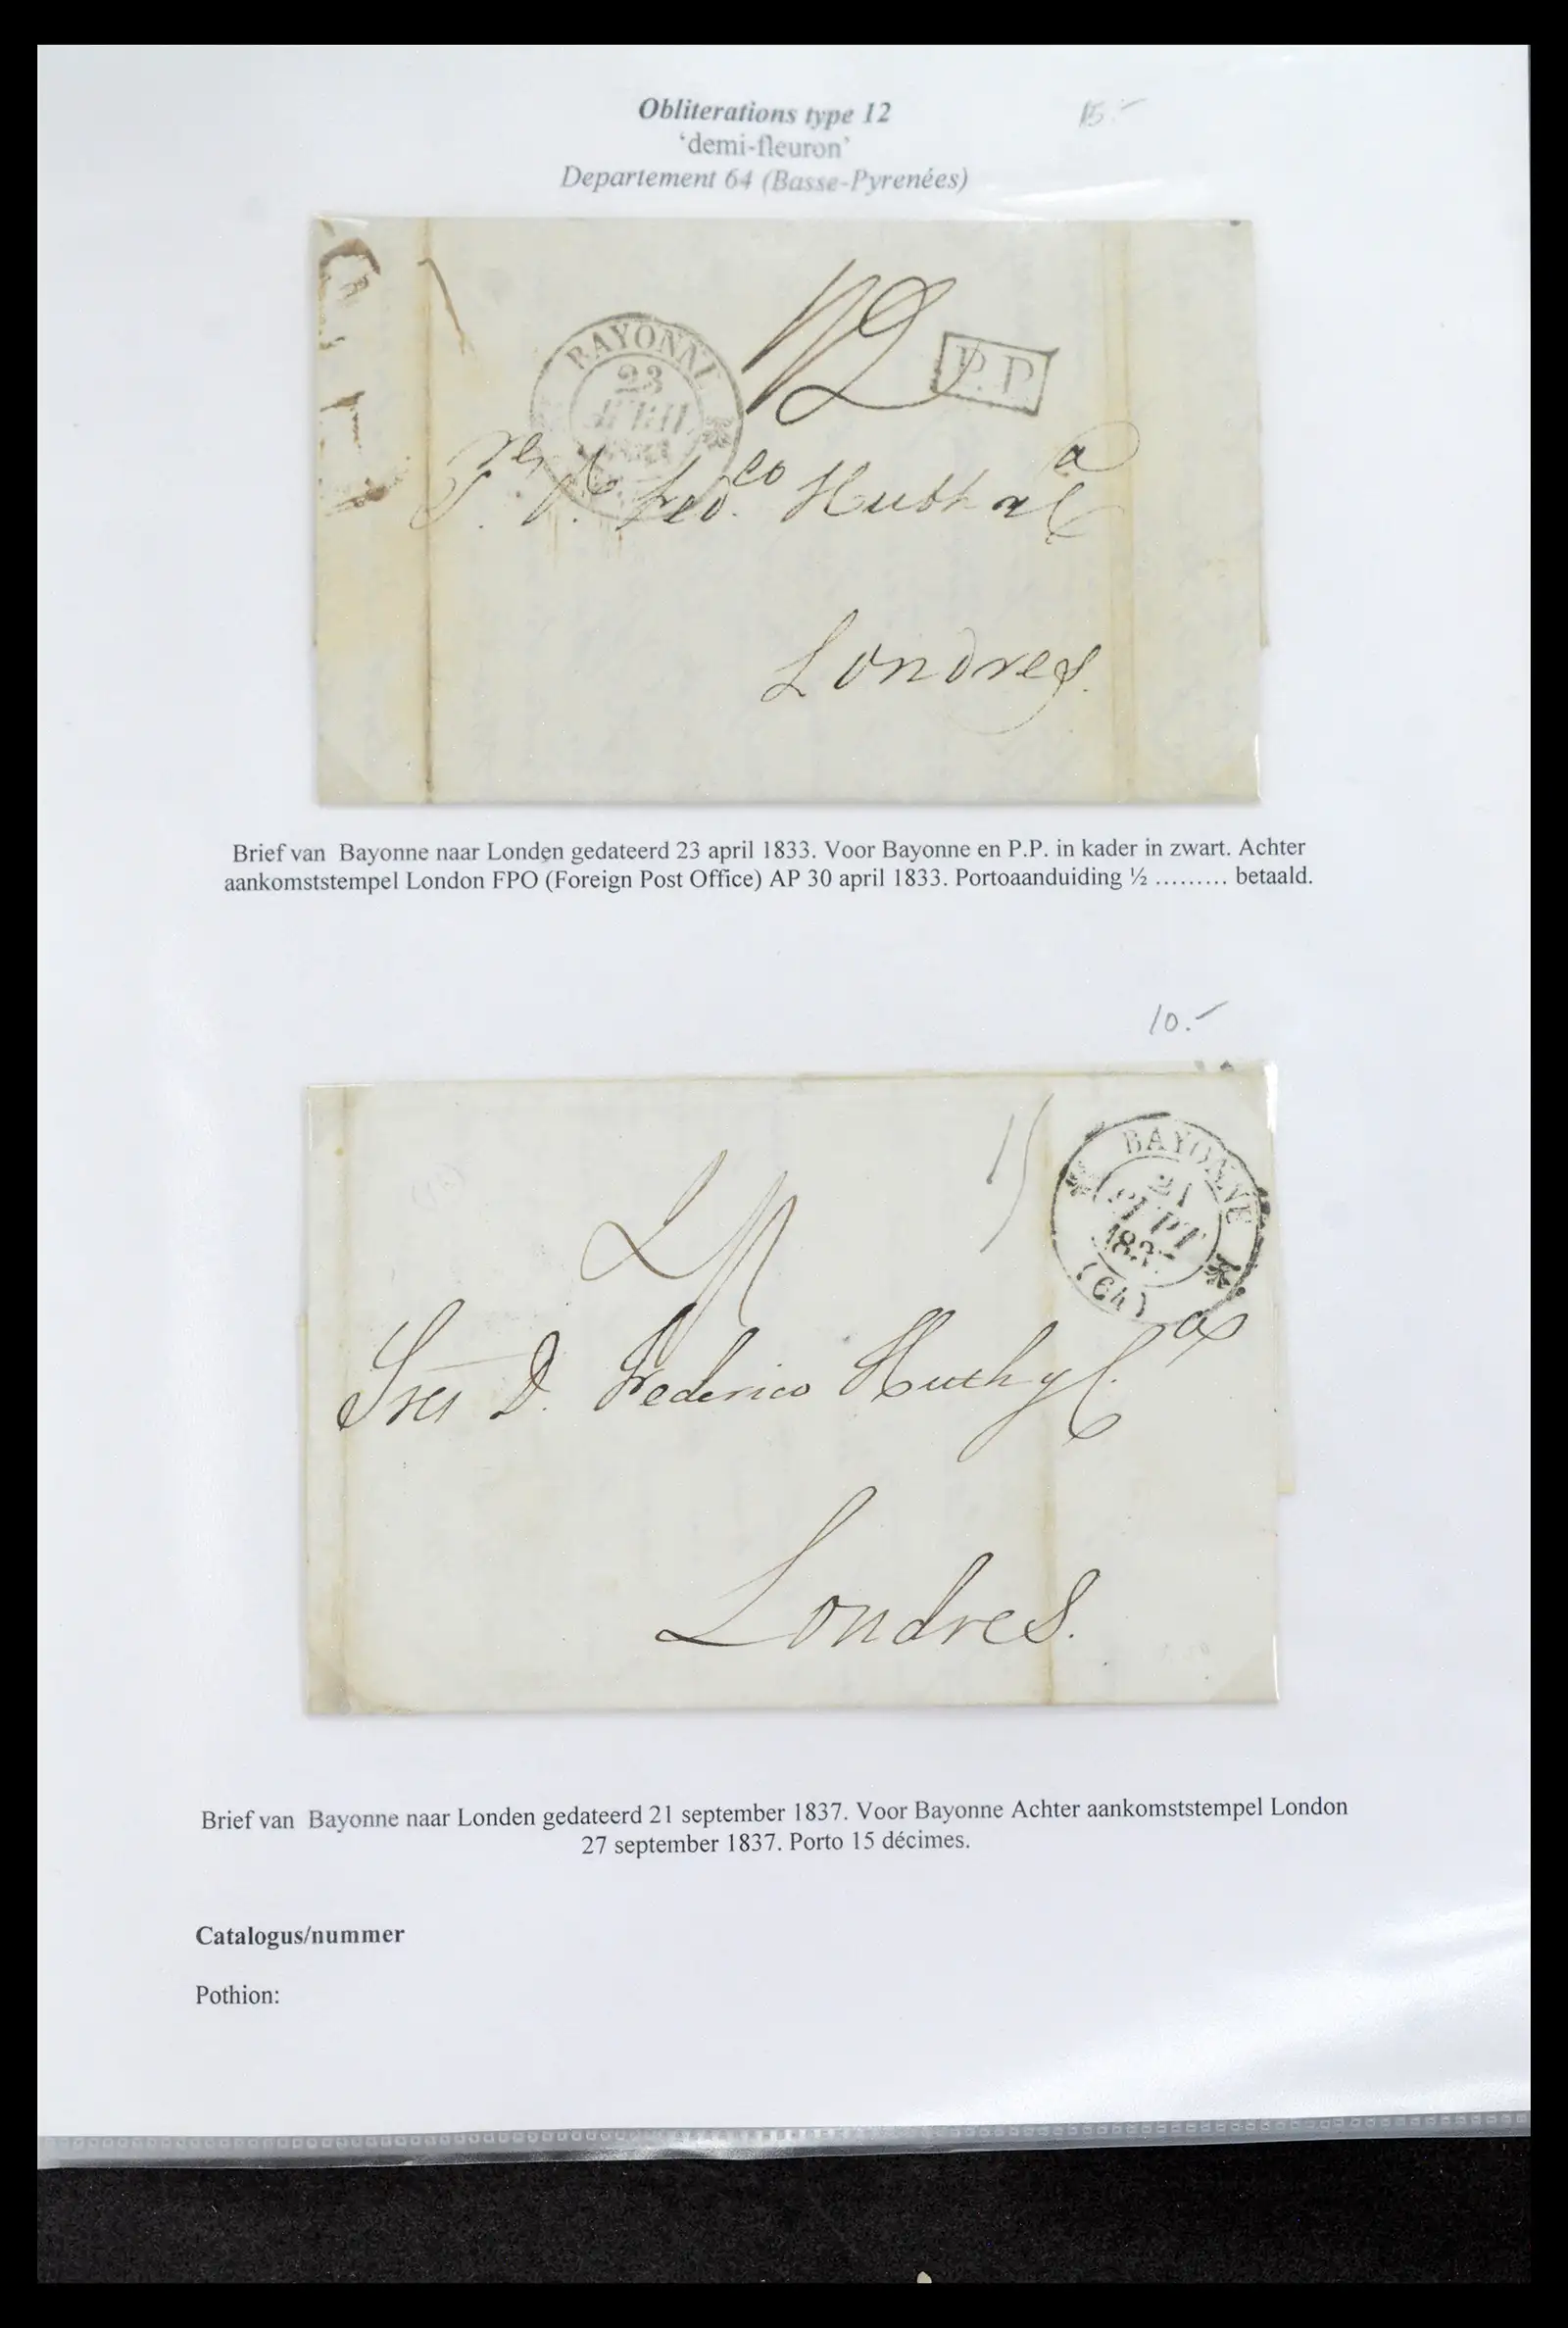 Obliterations type 12
15.-
‘demi-fleuron’
Departement 64 (Basse-Pyrenées)
BAYONNE
23
AVRIL
P.P.
Londres.
Brief van Bayonne naar Londen gedateerd 23 april 1833. Voor Bayonne en P.P. in kader in zwart. Achter
aankomststempel London FPO (Foreign Post Office) AP 30 april 1833. Portoaanduiding ½ ......... betaald.
10.-
BAYONNE
21
SEPT
1837
(64)
Sres D. Federico Huth y C.ª
Londres.
Brief van Bayonne naar Londen gedateerd 21 september 1837. Voor Bayonne Achter aankomststempel London
27 september 1837. Porto 15 décimes.
Catalogus/nummer
Pothion: